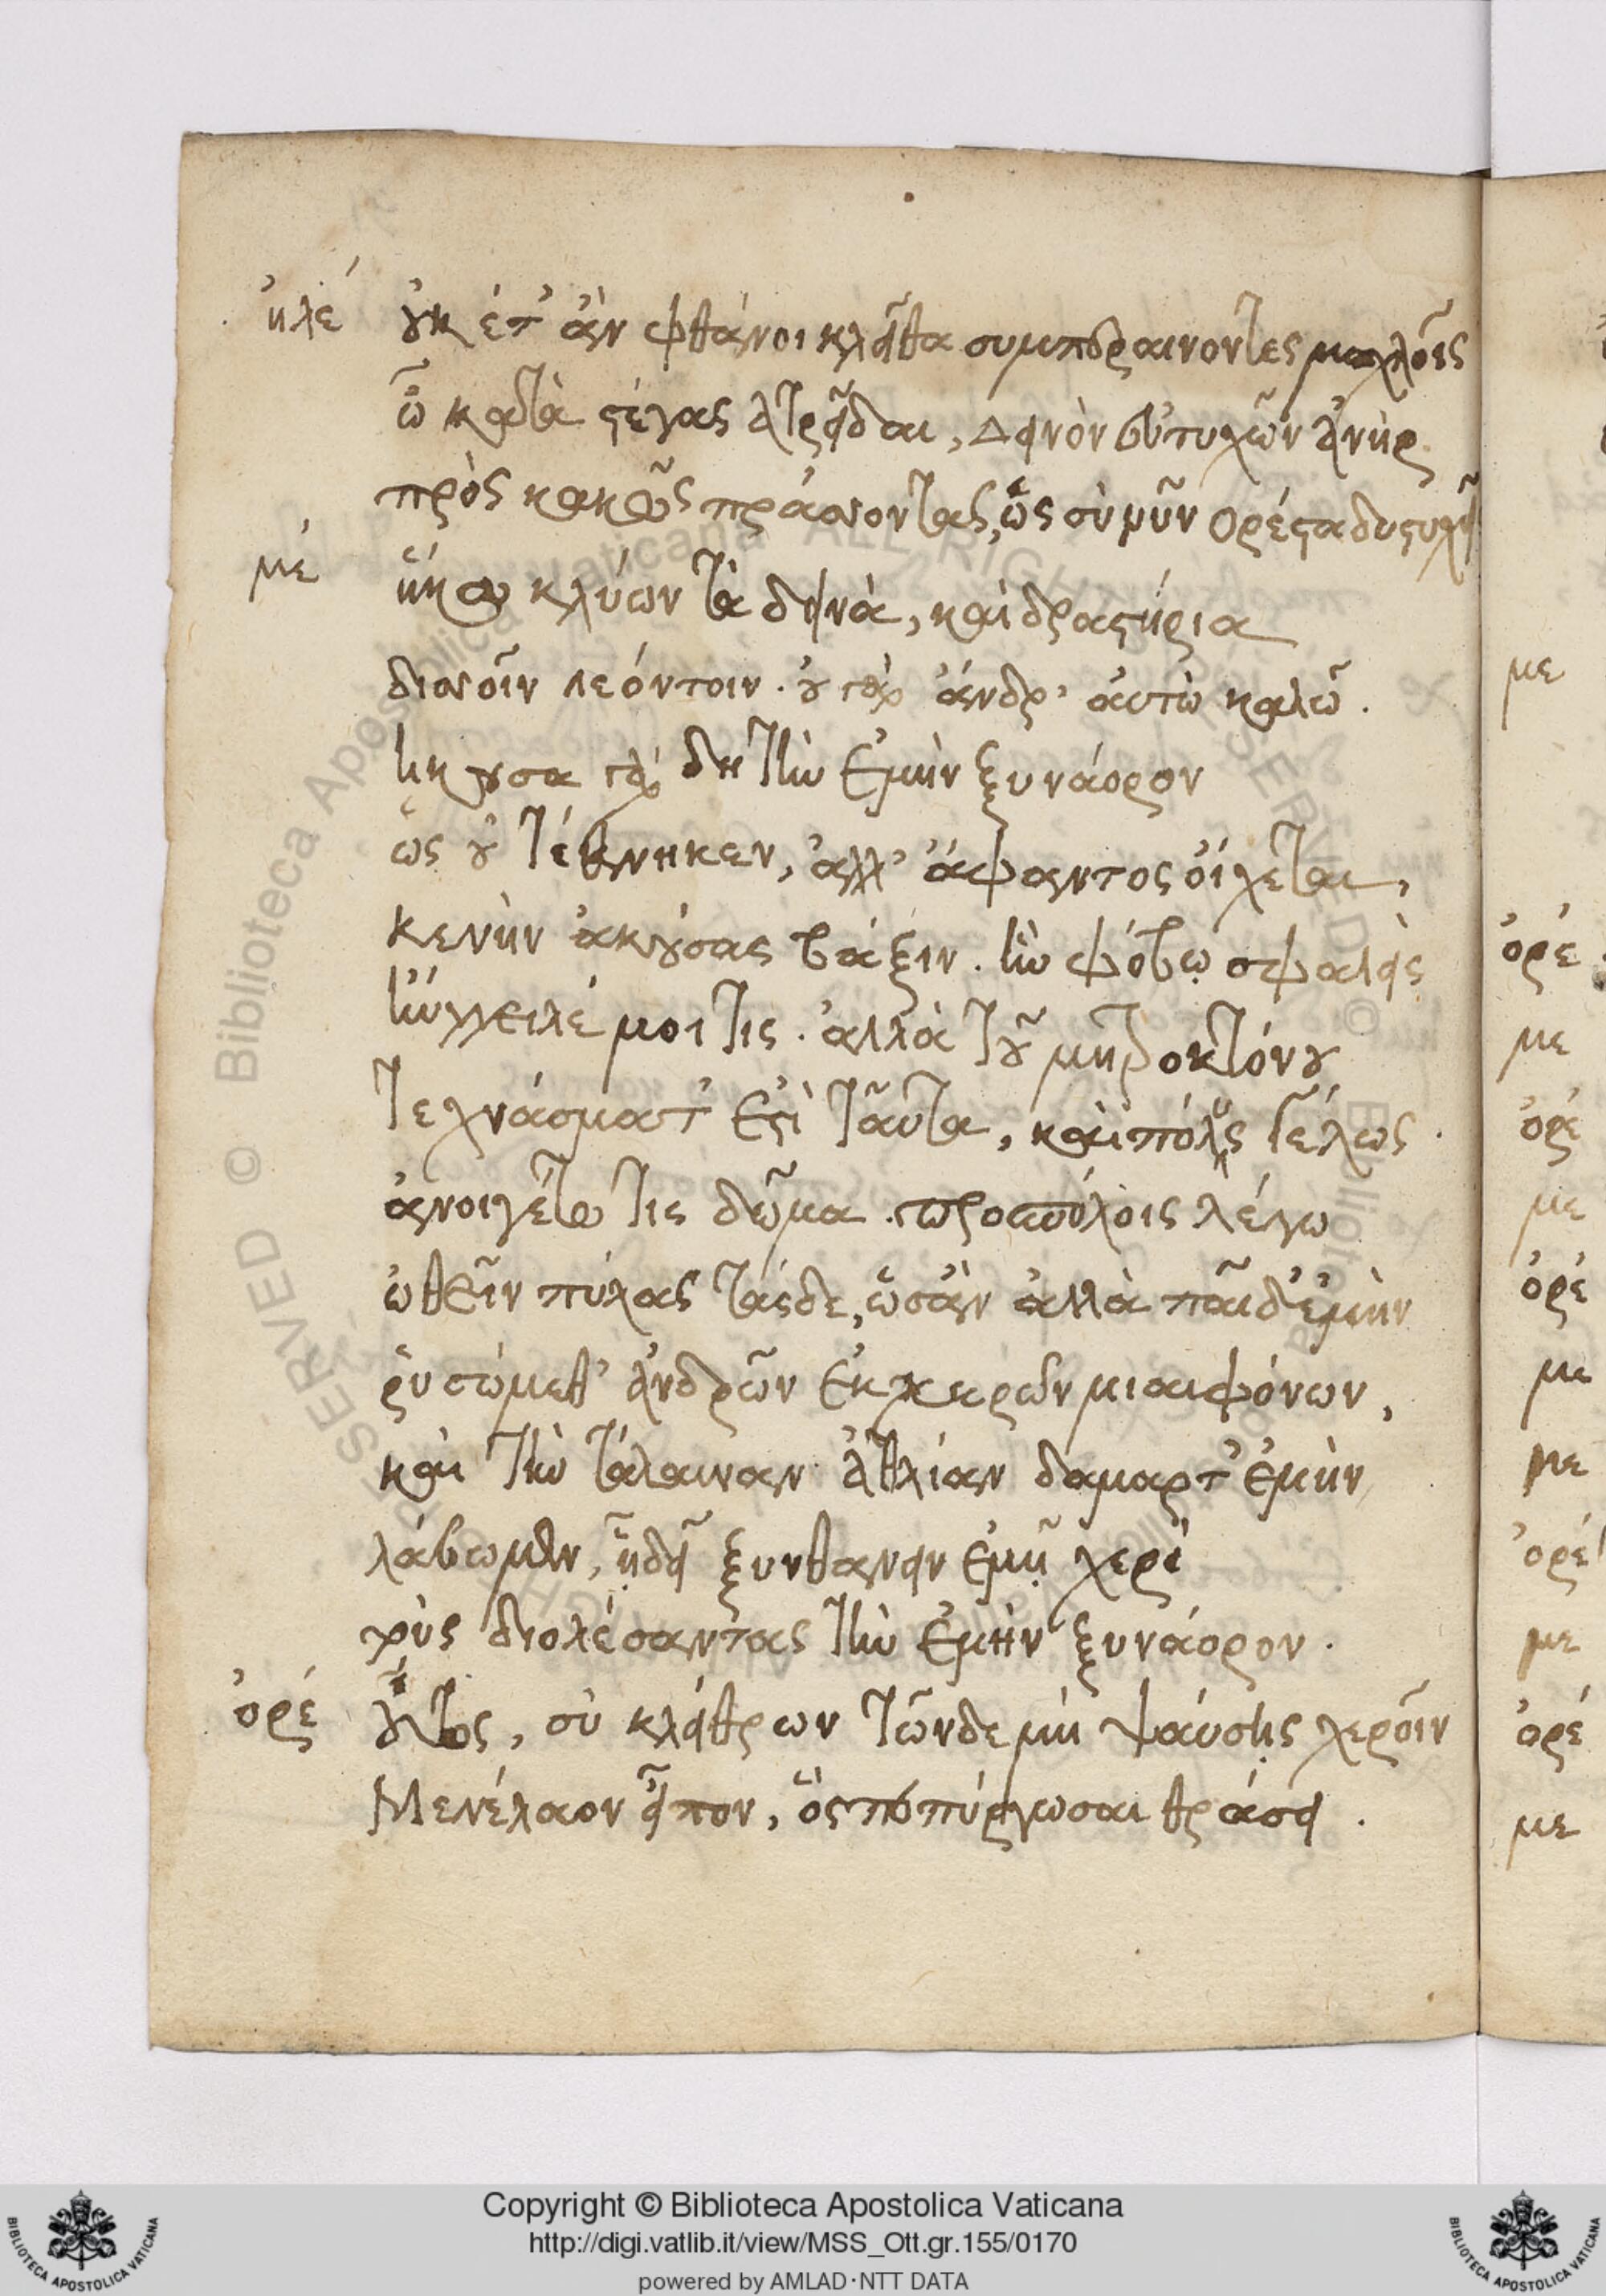 ἠλέ οὐκ ἔτ' ἂν φθάνοι κλεῖθα συμπεραίνοντες μοχλοῖς
ὦ κατὰ στέγας ἀτρεῖδαι, δεινὸν εὐτυχῶν ἀνὴρ
πρὸς κακῶς πράσσοντας, ὡς σὺ νῦν ὀρέστα δυστυχεῖς
με ἥκω κλύων τὰ δεινὰ, καὶ δραστήρια
δισσοῖν λεόντοιν. οὐ γὰρ ἄνδρ' αὐτὼ καλῶ.
ἤκουσα γὰρ δὴ τὴν ἐμὴν ξυνάορον
ὡς οὐ τέθνηκεν, ἀλλ' ἄφαντος οἴχεται,
κενὴν ἀκούσας βάξιν. ἣν φόβῳ σφαλεὶς
ἤγγειλέ μοι τις. ἀλλὰ τοῦ μητροκτόνου
τεχνάσματ' ἐστὶ ταῦτα, καὶ πολὺς γέλως.
ἀνοιγέτω τις δῶμα. προσπόλοις λέγω
ὠθεῖν πύλας τάσδε, ὡς ἂν ἀλλὰ παῖδ' ἐμὴν
ῥυσώμεθ' ἀνδρῶν ἐκ χερῶν μιαιφόνων,
καὶ τὴν τάλαιναν ἀθλίαν δάμαρτ' ἐμὴν
λάβωμεν, ᾗ δεῖ ξυνθανεῖν ἐμῇ χερὶ
τοὺς διολέσαντας τὴν ἐμὴν ξυνάορον.
ὀρέ οὗτος, σὺ κλείθρων τῶνδε μὴ ψαύσῃς χεροῖν
Μενέλαον εἶπον, ὃς πεπύργωσαι θράσει.
με
ὀρέ
με
ὀρέ
με
ὀρέ
με
με
ὀρέ
με
ὀρέ
με
Copyright © Biblioteca Apostolica Vaticana
http://digi.vatlib.it/view/MSS_Ott.gr.155/0170
powered by AMLAD·NTT DATA
BIBLIOTECA APOSTOLICA VATICANA
BIBLIOTECA APOSTOLICA VATICANA